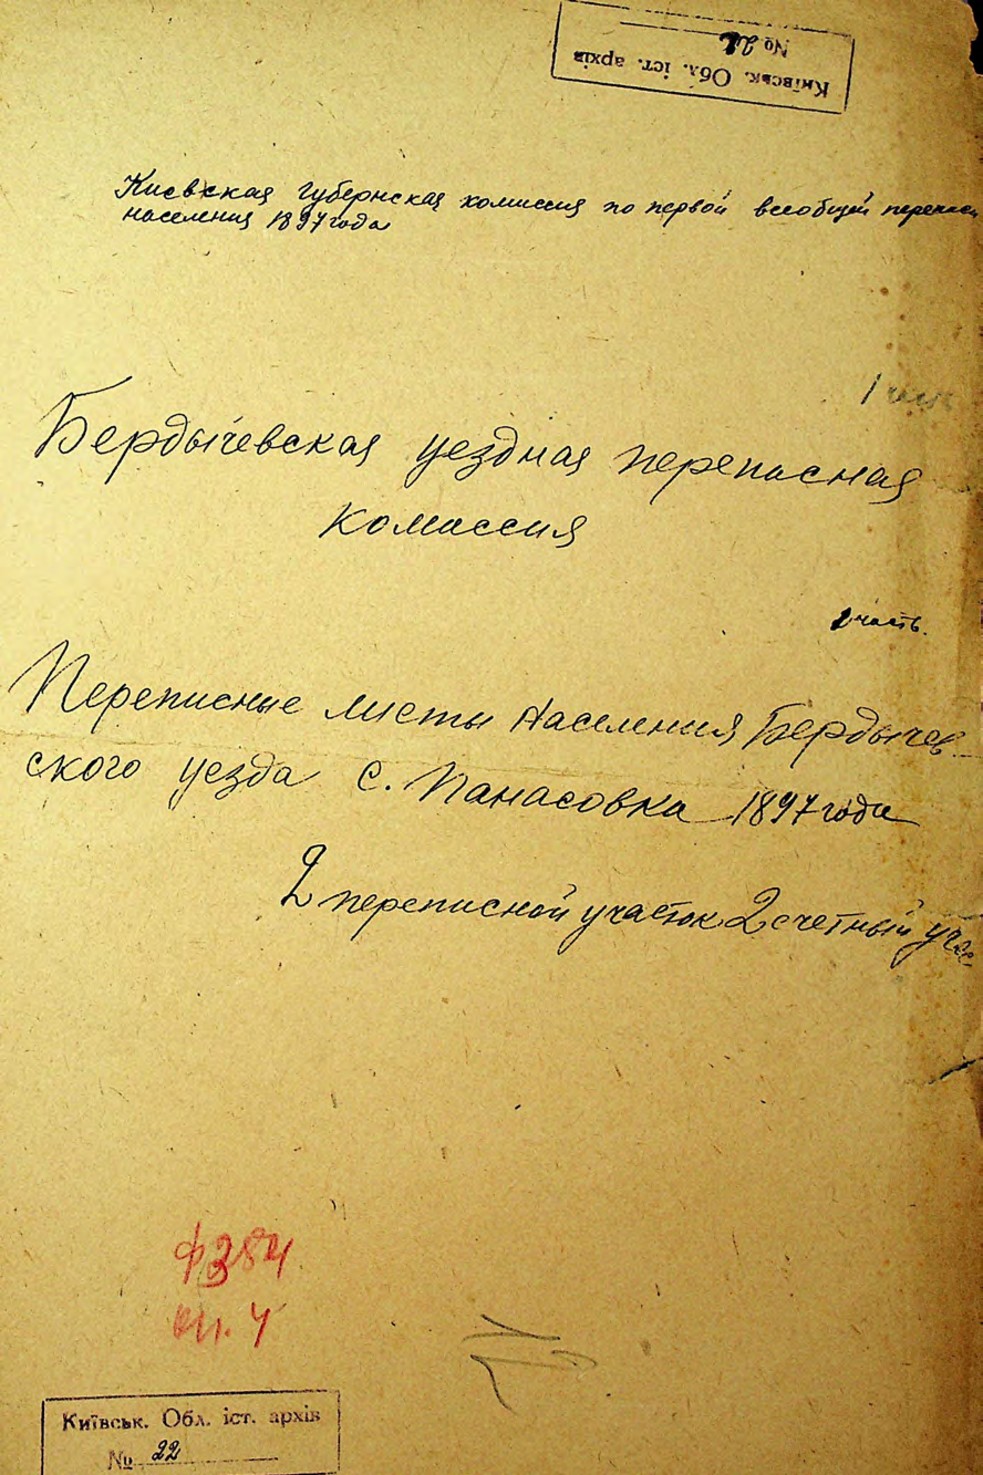 Київськ. Обл. іст. архів
№ 22
Киевская губернская комиссия по первой всеобщей переписи
населения 1897 года
Бердычевская уездная переписная
комиссия
часть.
Переписные листы населения Бердычев
ского уезда с. Панасовка 1897 года
2 переписной участок 2 счетный учас
ф 384
оп. 4
Київськ. Обл. іст. архів
№ 22